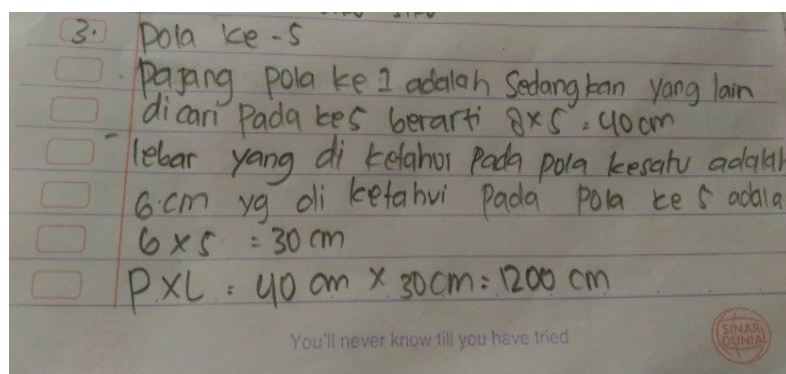 3. pola ke-5
pajang pola ke 1 adalah Sedangkan yang lain
dicari pada ke5 berarti 8x5 = 40 cm
- lebar yang di ketahui pada pola kesatu adalah
6 cm yg di ketahui pada pola ke 5 adala
6 x 5 = 30 cm
P x L = 40 cm x 30 cm = 1200 cm
You'll never know till you have tried
SINAR
DUNIA